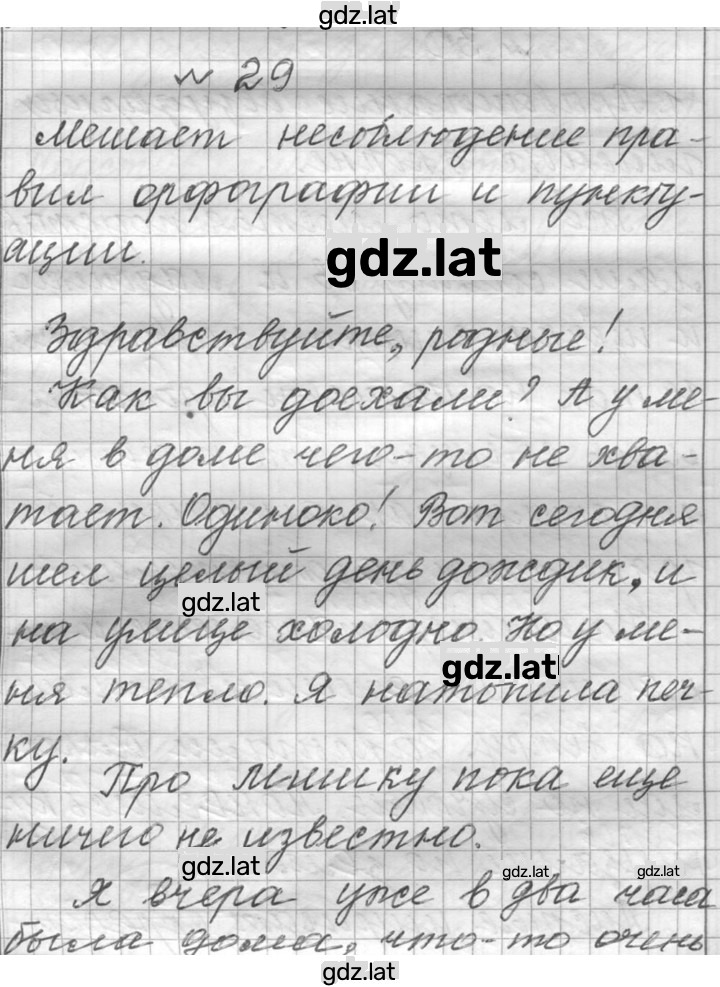 gdz.lat
№ 29
мешает несоблюдение пра-
вил орфографии и пункту-
ации.
gdz.lat
Здравствуйте, родные!
Как вы доехали? А у ме-
ня в доме чего-то не хва-
тает. Одиноко! Вот сегодня
шел целый день дождик, и
gdz.lat
на улице холодно. Но у ме-
gdz.lat
ня тепло. Я натопила печ-
ку.
Про Мишку пока еще
ничего не известно.
gdz.lat
gdz.lat
gdz.lat
Я вчера уже в два часа
была дома, что-то очень
gdz.lat